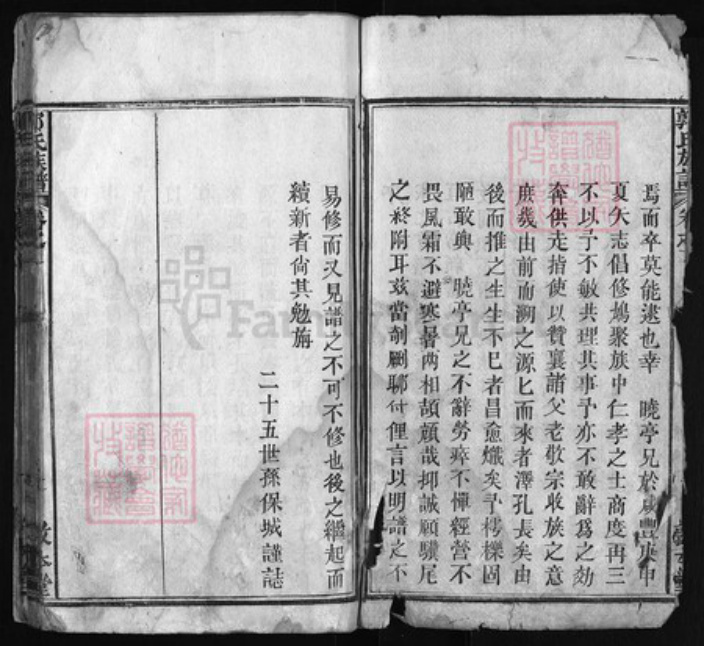 郭氏族譜
焉而卒莫能逮也幸　曉亭兄於咸豐庚申
夏矢志倡修鳩聚族中仁孝之士商度再三
不以予不敏共理其事予亦不敢辭爲之効
奔供走指使以贊襄諸父老敬宗收族之意
庶幾由前而溯之源匕而來者澤孔長矣由
後而推之生生不已者昌愈熾矣予樗櫟固
陋敢與　曉亭兄之不辭勞瘁不憚經營不
畏風霜不避寒暑两相頡頏哉抑誠願驥尾
之終附耳茲當剞劂聊付俚言以明譜之不
易修而又見譜之不可不修也後之繼起而
續新者尙其勉旃
二十五世孫保城謹誌
郭氏族譜
敦本堂